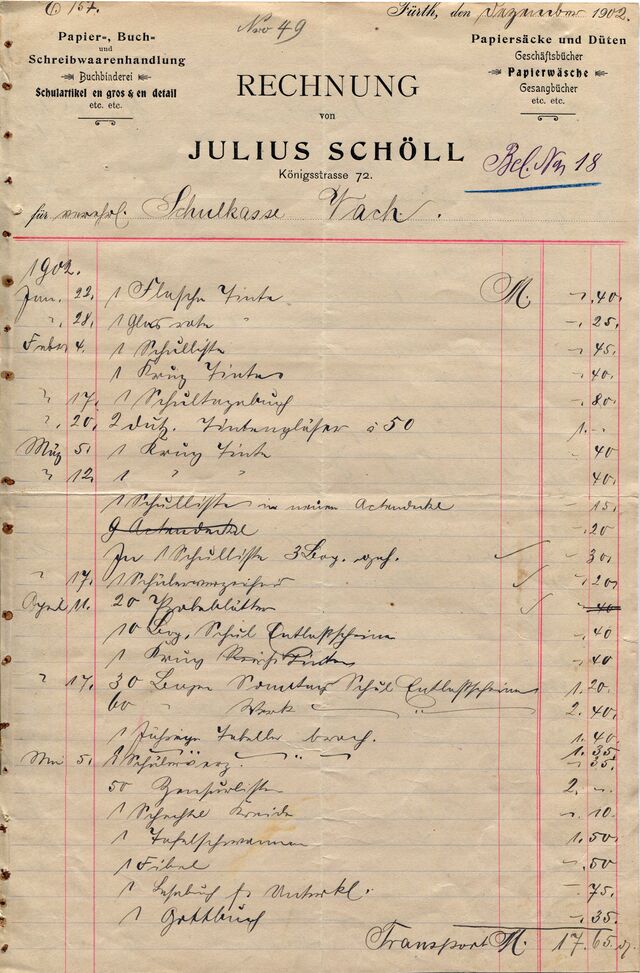 157.
No 49
Fürth, den Dezember 1902.
Papier-, Buch-
und
Schreibwaarenhandlung
Buchbinderei
Schulartikel en gros & en detail
etc. etc.
RECHNUNG
von
JULIUS SCHÖLL
Königsstrasse 72.
Papiersäcke und Düten
Geschäftsbücher
Papierwäsche
Gesangbücher
etc. etc.
Bel. No 18
für verehrl. Schulkasse Vach.
1902.
Jan. 22. 1 Flasche Tinte M. -.40.
" 28. 1 Glas rote " -.25.
Febr. 4. 1 Schulliste -.45.
1 Krug Tinte -.40.
" 17. 1 Schultagebuch -.80.
" 20. 2 dutz. Tintengläser à 50 1.-
März 5. 1 Krug Tinte -.40
" 12. 1 " " 40.
1 Schulliste in neuen Actendeckel -.15.
9 Actendeckel -.20
1 Schulliste 3 Bog. 30.
" 17. 1 Schülerverzeichnis -.20
April 11. 20 Probeblätter -.40
10 Bog. Schul Entlaßscheine -.40
1 Krug Tinte -.40
" 17. 30 Bogen Sonntag Schul Entlaßscheine 1.20.
60 " Werk " 2.40.
1 Tabelle 1.40.
1.35.
Mai 5. 1 Schülerverz. -.35.
50 Zensurlisten 2.-.
1 Schachtel Kreide -.10.
1 Tafelschwamm 1.50.
1 Fibel -.50
1 Lesebuch f. Unterkl. -.75.
1 -.35.
Transport M. 17.65